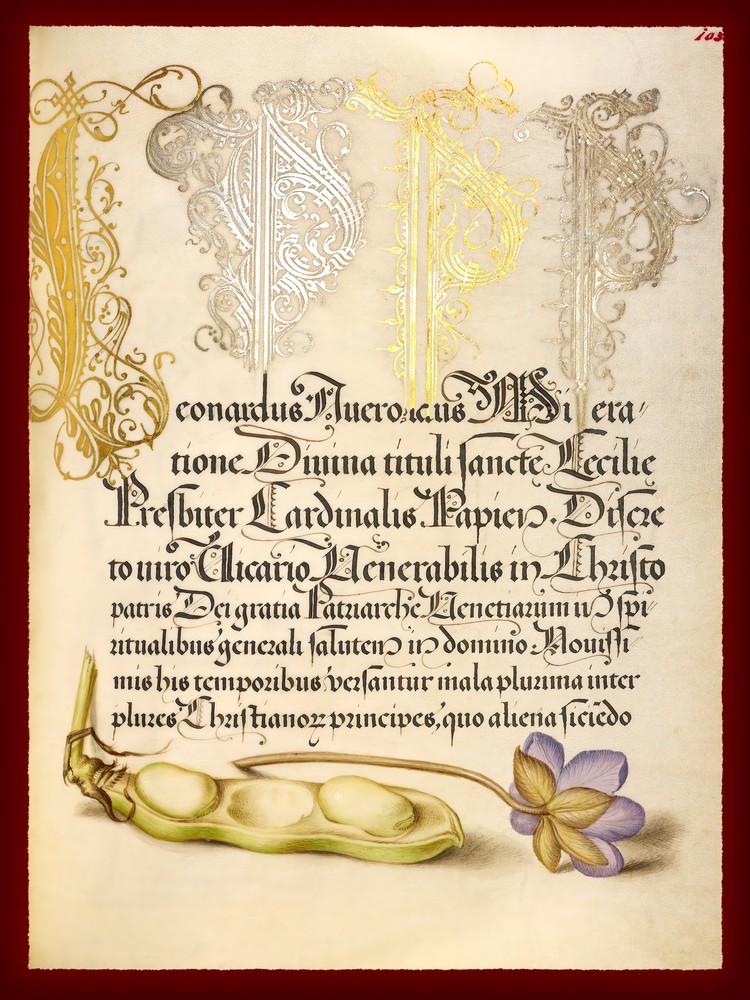 P P P
Leonardus
tione Diuina tituli sancte Cecilie
Presbiter Cardinalis Papien. Discre
to uiro Vicario Venerabilis in Christo
patris Dei gratia Patriarche Venetiarum in spi
ritualibus generali salutem in domino Nouissi
mis his temporibus versantur mala plurima inter
plures Christianoꝝ principes, quo aliena siciēdo